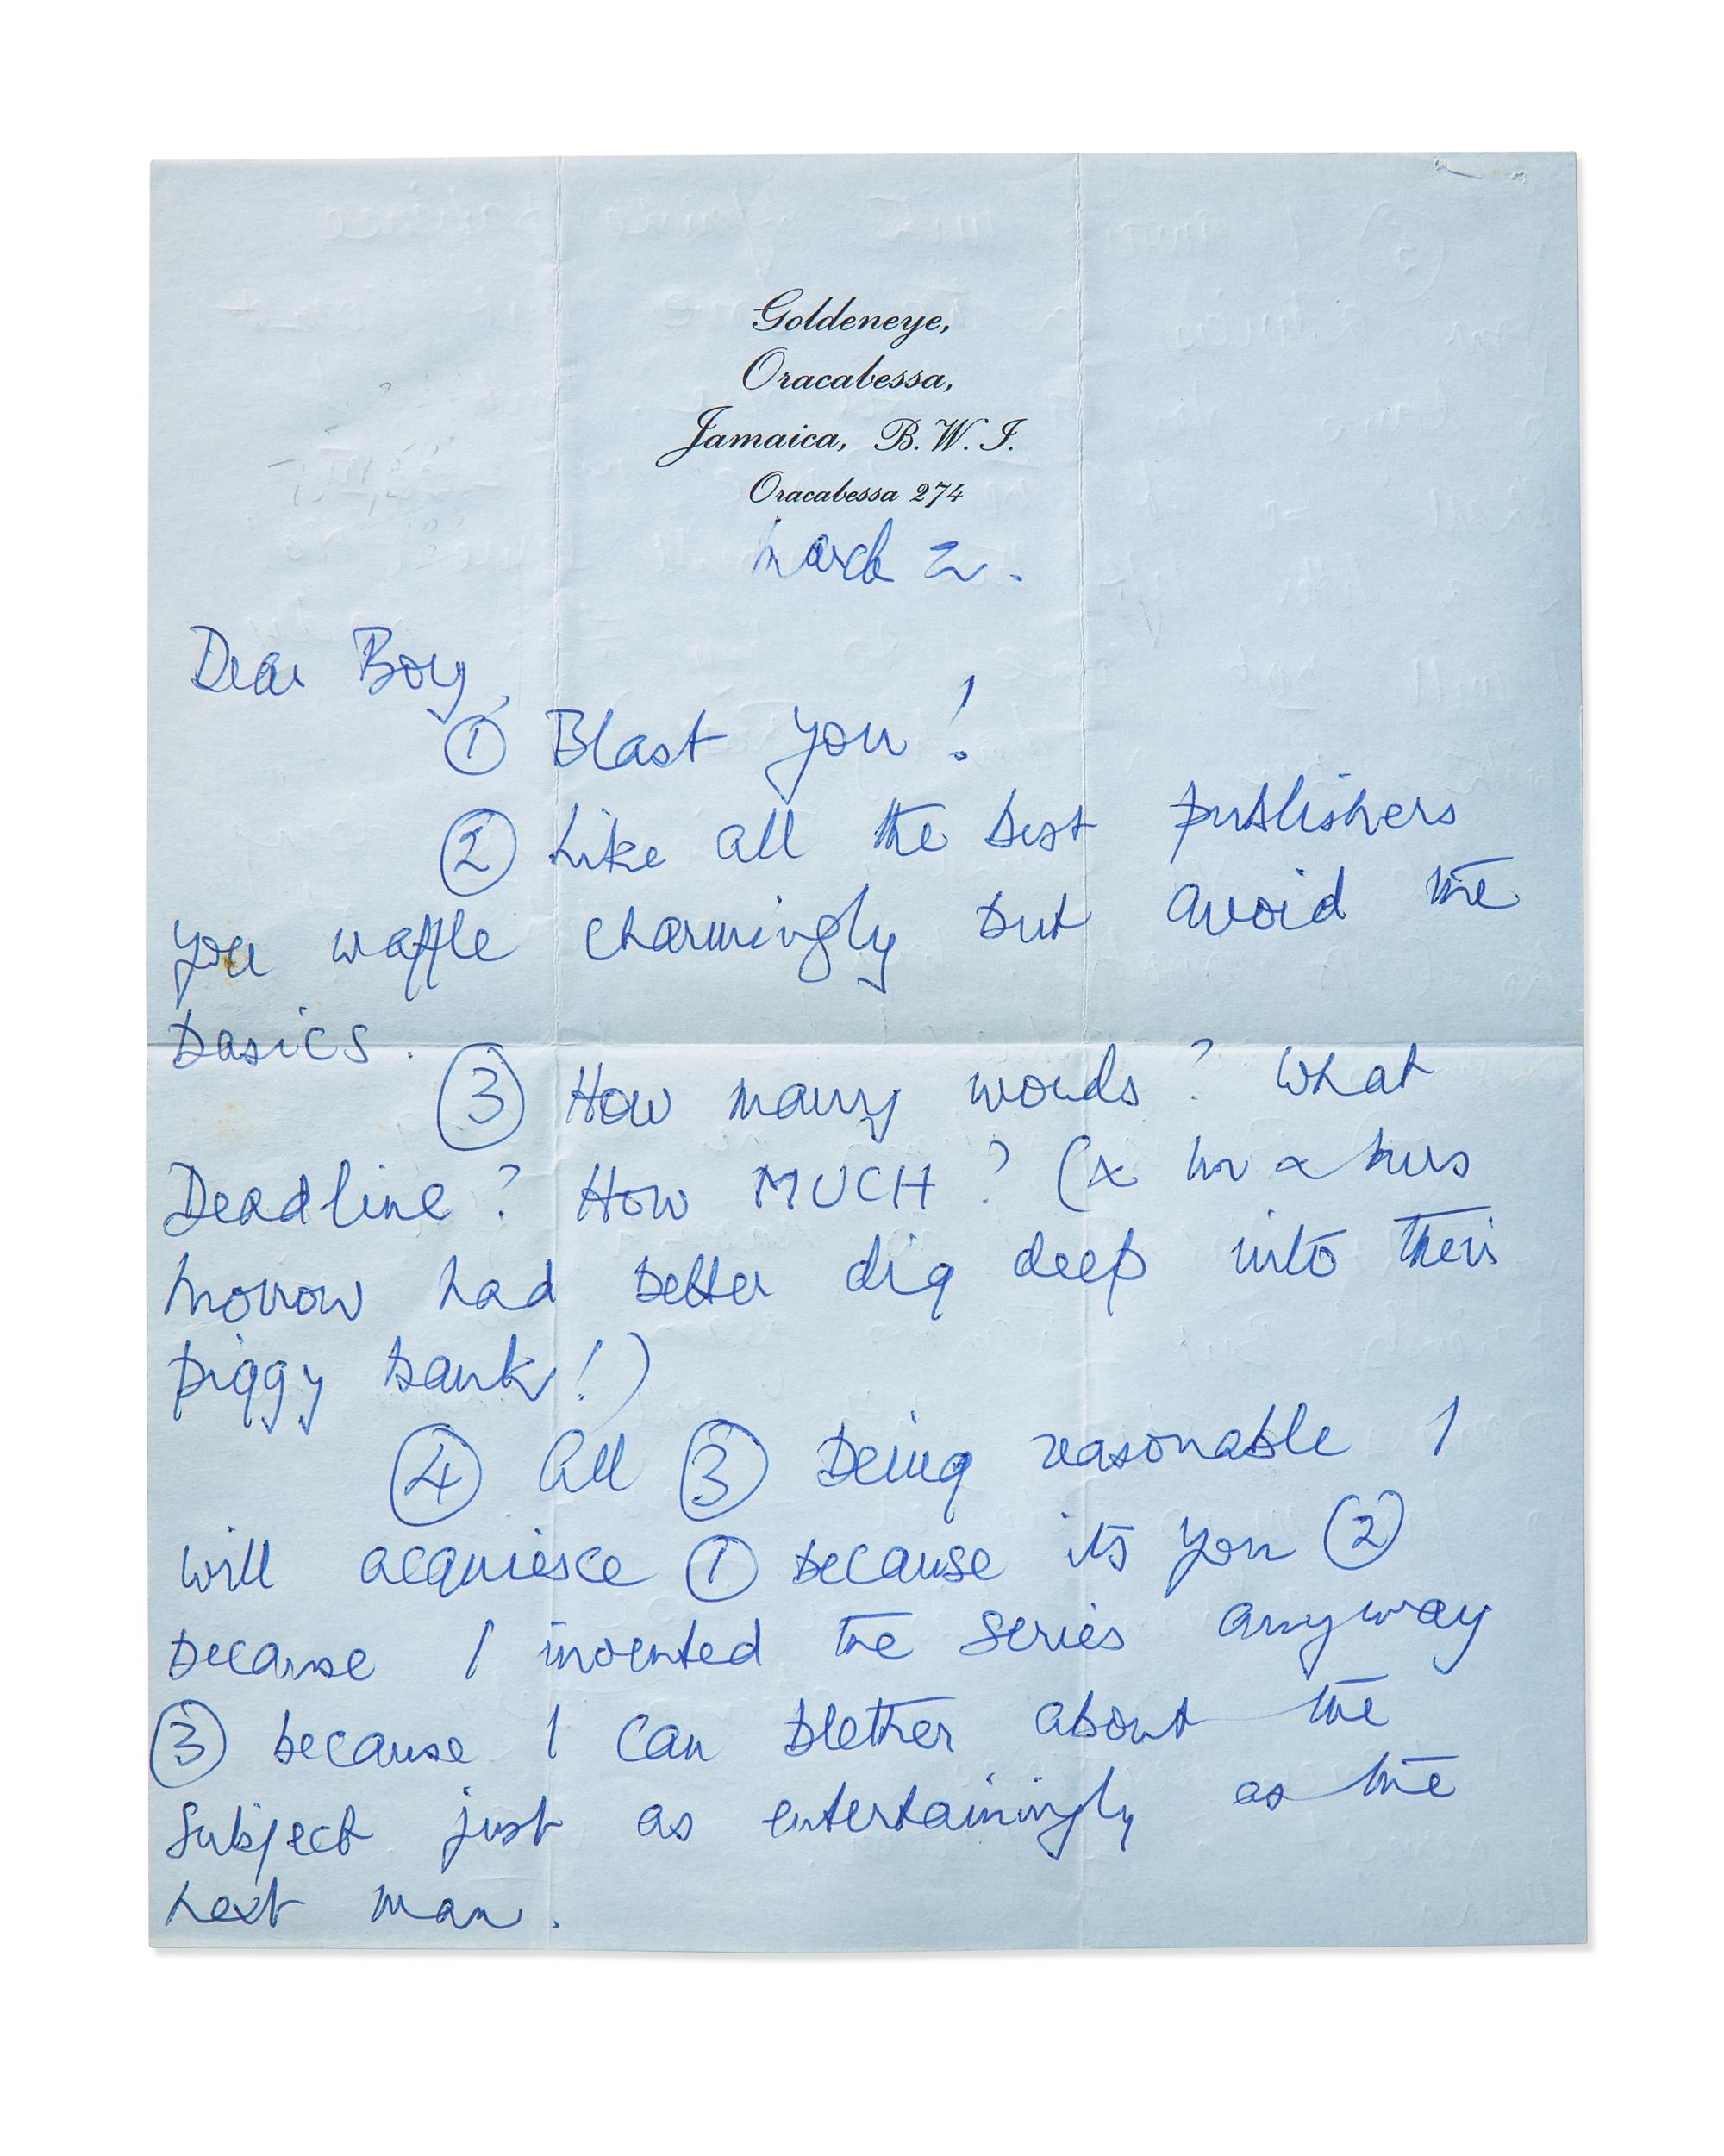 Goldeneye,
Oracabessa,
Jamaica, B.W.I.
Oracabessa 274
March 2.
Dear Boy,
① Blast you!
② Like all the best publishers
you waffle charmingly but avoid the
basics.
③ How many words? What
Deadline? How MUCH? (&
Morrow had better dig deep into their
piggy bank!)
④ All ③ being reasonable I
will acquiesce ① because its you ②
because I invented the series anyway
③ because I can blether about the
subject just as entertainingly as the
next man.